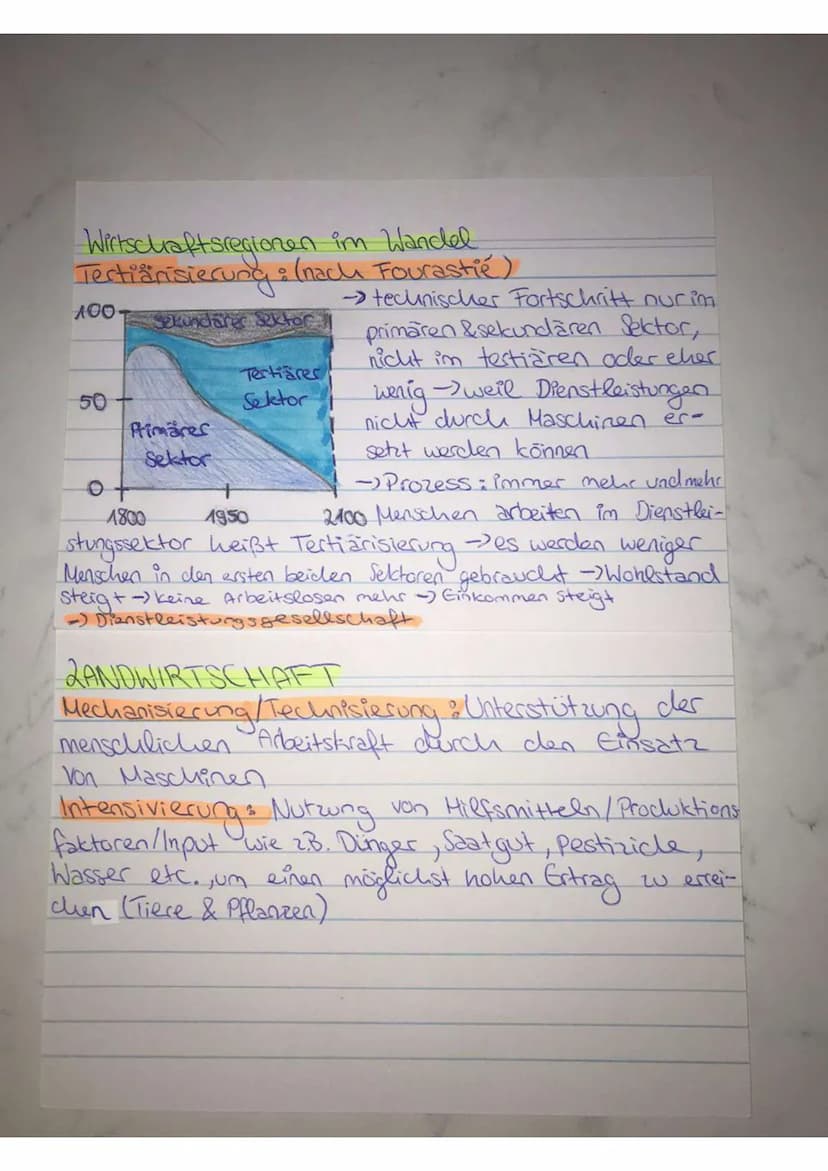 Wirtschaftsregionen im Wandel
Tertiärisierung: (nach Fourastié)
100
50
0
1800
1950
2100
Sekundärer Sektor
Tertiärer
Sektor
Primärer
Sektor
→ technischer Fortschritt nur im
primären & sekundären Sektor,
nicht im testiären oder eher
wenig → weil Dienstleistungen
nicht durch Maschinen er-
setzt werden können
→ Prozess: immer mehr und mehr
Menschen arbeiten im Dienstlei-
stungssektor heißt Tertiärisierung → es werden weniger
Menschen in den ersten beiden Sektoren gebraucht → Wohlstand
steigt → keine Arbeitslosen mehr → Einkommen steigt
→ Dienstleistungsgesellschaft
LANDWIRTSCHAFT
Mechanisierung/Technisierung: Unterstützung der
menschlichen Arbeitskraft durch den Einsatz
von Maschinen
Intensivierung: Nutzung von Hilfsmitteln/Produktions
faktoren/Input wie z.B. Dünger, Saatgut, Pestizide,
Wasser etc., um einen möglichst hohen Ertrag zu errei-
chen (Tiere & Pflanzen)